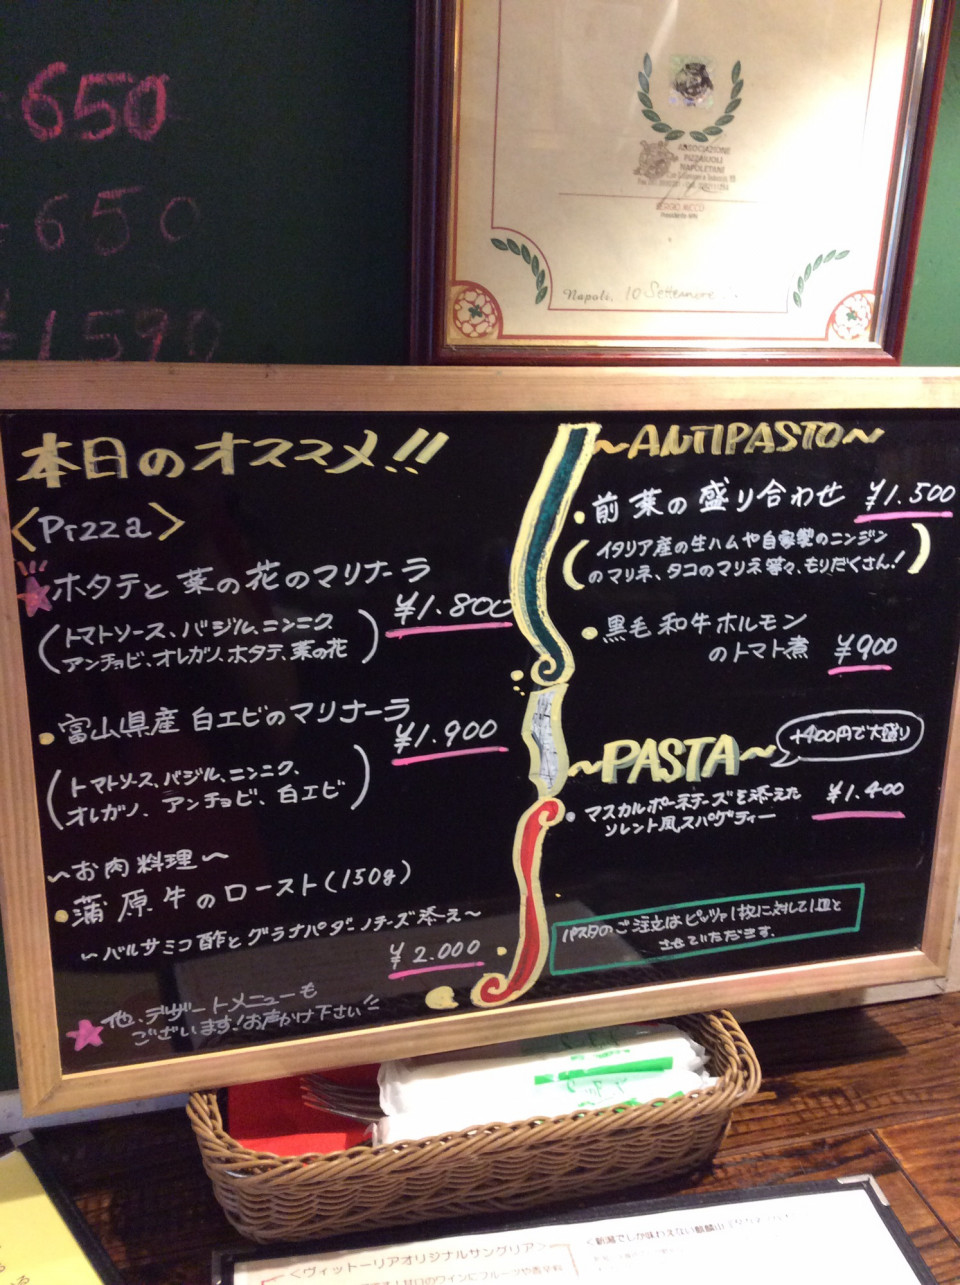 650
650
¥1590
ASSOCIAZIONE
PIZZAIUOLI
NAPOLETANI
SERGIO MICCÙ
Napoli, 10 Settembre
本日のオススメ!!
<Pizza>
ホタテと菜の花のマリナーラ
¥1.800
(トマトソース、バジル、ニンニク
アンチョビ、オレガノ、ホタテ、菜の花)
富山県産 白エビのマリナーラ
¥1.900
(トマトソース、バジル、ニンニク、
オレガノ、アンチョビ、白エビ)
〜お肉料理〜
蒲原牛のロースト(150g)
〜バルサミコ酢とグラナパダーノチーズ添え〜
¥2.000
他、デザートメニューも
ございます!お声かけ下さい!!
〜ANTIPASTO〜
前菜の盛り合わせ ¥1.500
(イタリア産の生ハムや自家製のニンジン
のマリネ、タコのマリネ等々、もりだくさん!)
黒毛和牛ホルモン
のトマト煮 ¥900
〜PASTA〜
+400円で大盛り
マスカルポーネチーズを添えた
ソレント風スパゲティー
¥1.400
パスタのご注文はピッツァ1枚に対して1皿と
させていただきます。
<ヴィットーリアオリジナルサングリア>